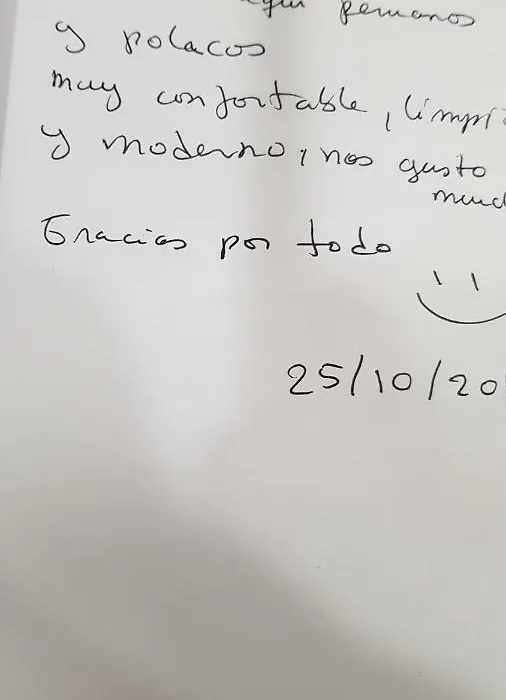 peruanos
y polacos
muy confortable, limpi
y moderno, nos gusto
muc
Gracias por todo
25/10/20